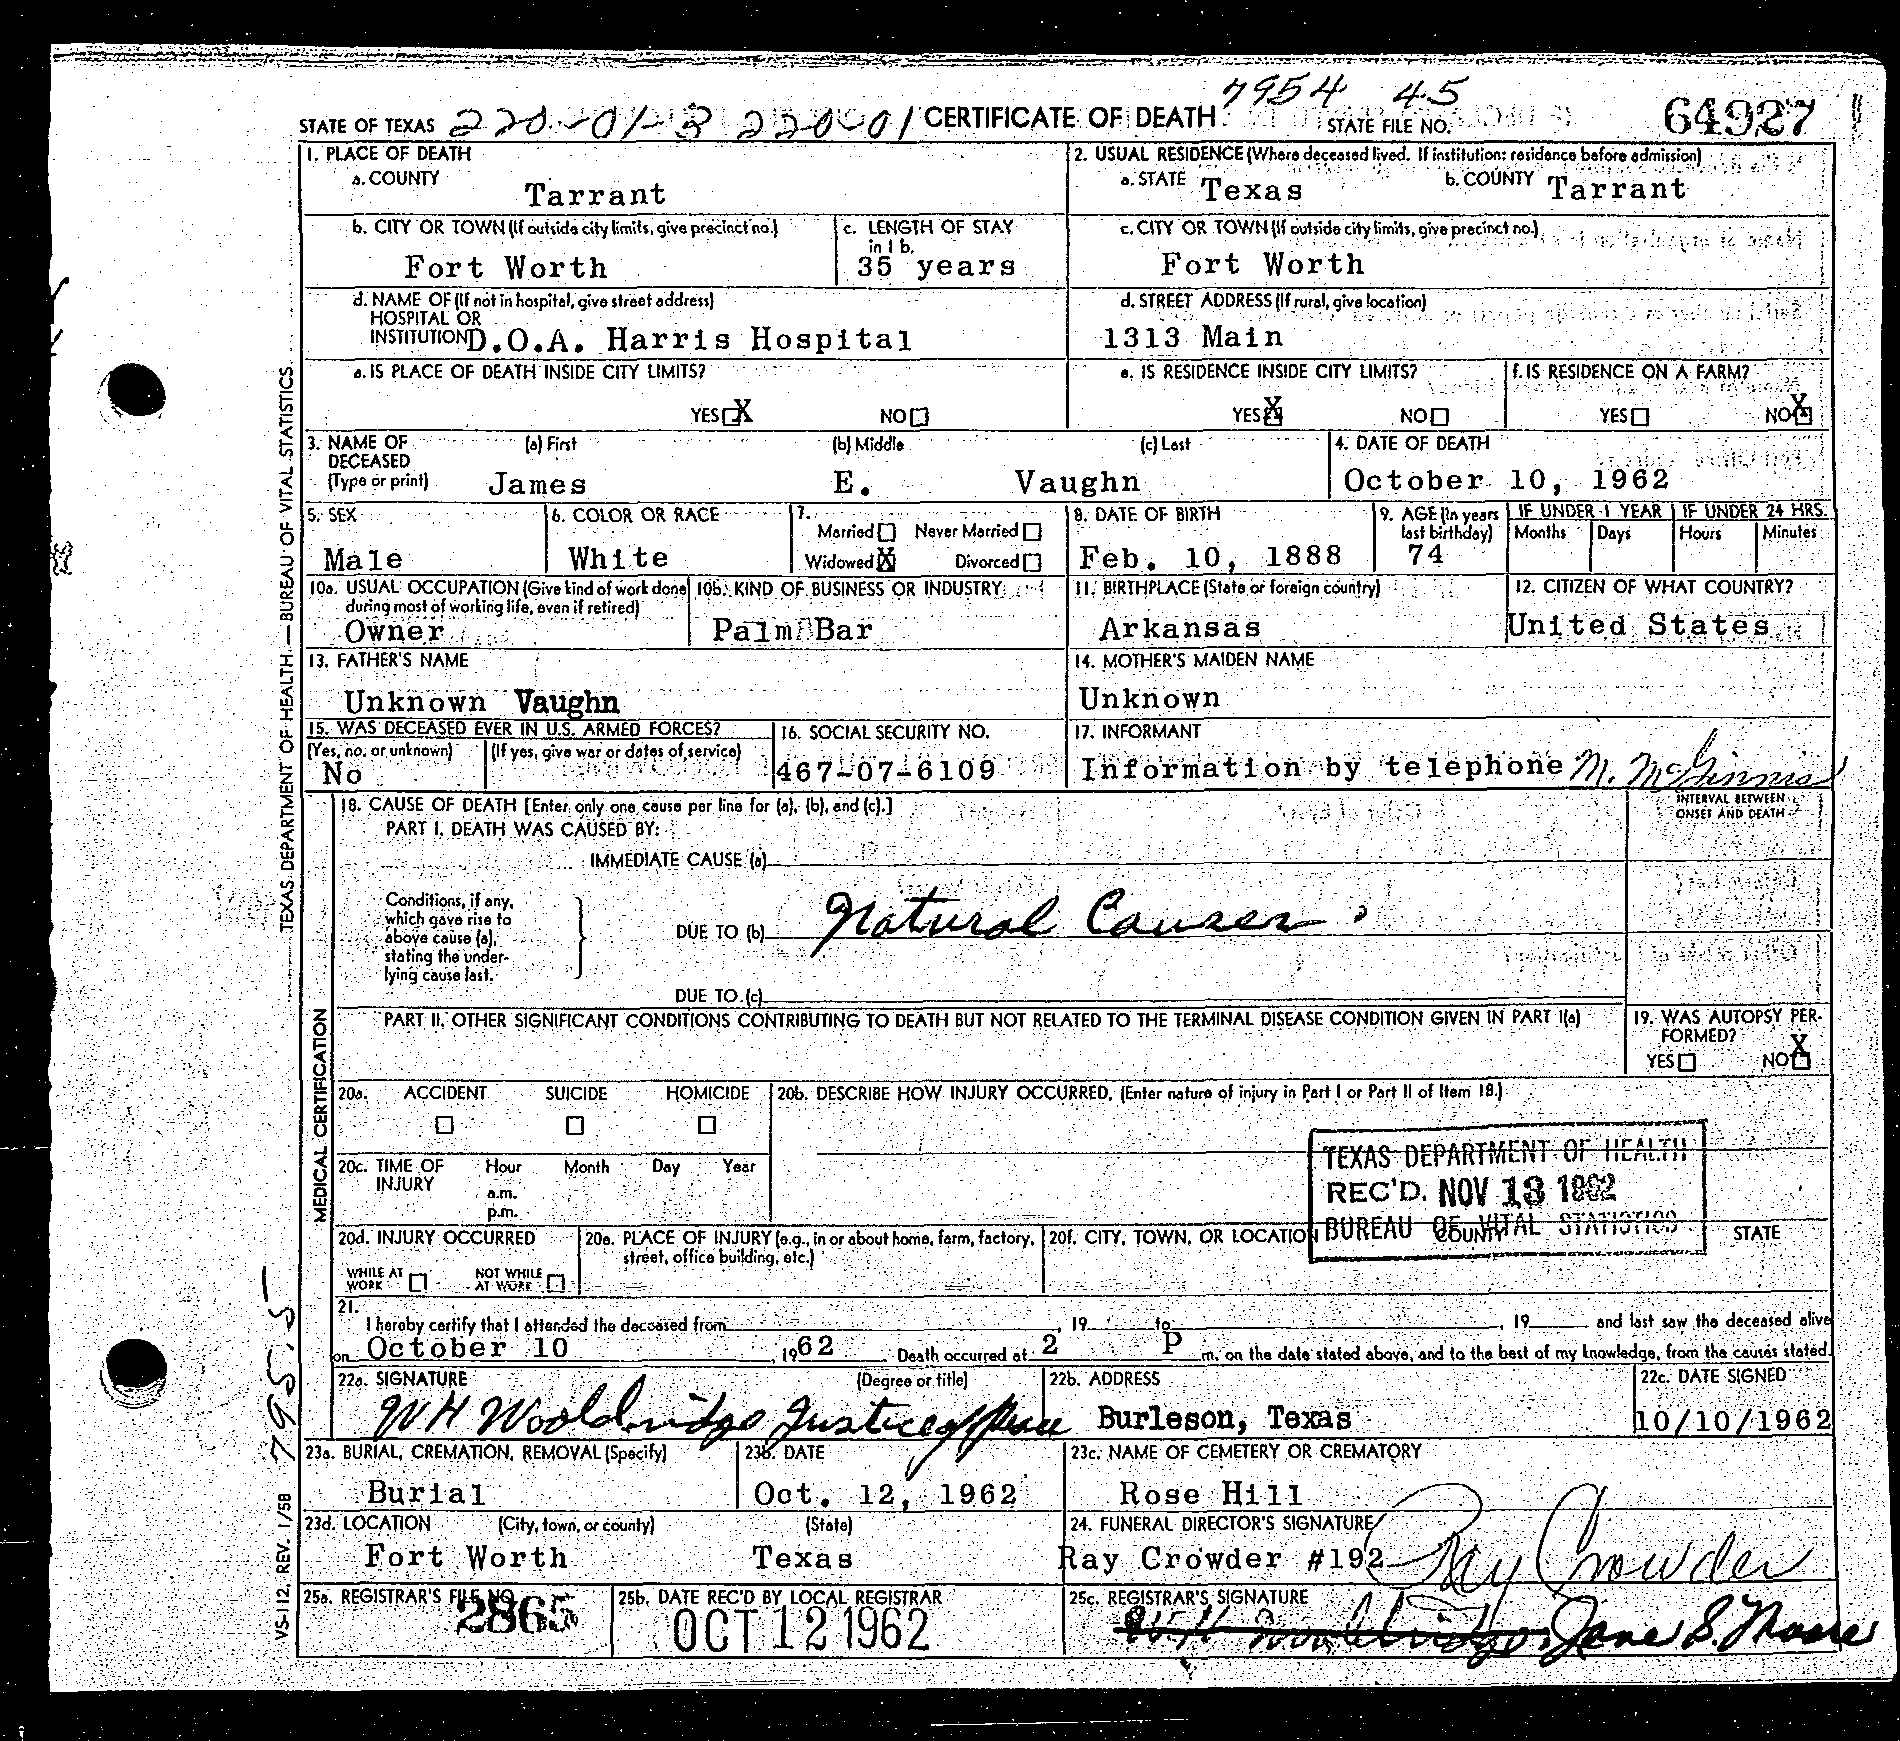 7954 45
STATE OF TEXAS 220-01-3 220-01 CERTIFICATE OF DEATH STATE FILE NO. 64927
1. PLACE OF DEATH
a. COUNTY
Tarrant
2. USUAL RESIDENCE (Where deceased lived. If institution: residence before admission)
a. STATE Texas b. COUNTY Tarrant
b. CITY OR TOWN (If outside city limits, give precinct no.)
Fort Worth
c. LENGTH OF STAY
in 1 b.
35 years
c. CITY OR TOWN (If outside city limits, give precinct no.)
Fort Worth
d. NAME OF (If not in hospital, give street address)
HOSPITAL OR
INSTITUTION D.O.A. Harris Hospital
d. STREET ADDRESS (If rural, give location)
1313 Main
e. IS PLACE OF DEATH INSIDE CITY LIMITS?
YES X NO
e. IS RESIDENCE INSIDE CITY LIMITS?
YES X NO
f. IS RESIDENCE ON A FARM?
YES NO X
3. NAME OF (a) First (b) Middle (c) Last
DECEASED
(Type or print) James E. Vaughn
4. DATE OF DEATH
October 10, 1962
5. SEX
Male
6. COLOR OR RACE
White
7.
Married Never Married
Widowed X Divorced
8. DATE OF BIRTH
Feb. 10, 1888
9. AGE (In years
last birthday)
74
IF UNDER 1 YEAR
Months Days
IF UNDER 24 HRS.
Hours Minutes
10a. USUAL OCCUPATION (Give kind of work done
during most of working life, even if retired)
Owner
10b. KIND OF BUSINESS OR INDUSTRY
Palm Bar
11. BIRTHPLACE (State or foreign country)
Arkansas
12. CITIZEN OF WHAT COUNTRY?
United States
13. FATHER'S NAME
Unknown Vaughn
14. MOTHER'S MAIDEN NAME
Unknown
15. WAS DECEASED EVER IN U.S. ARMED FORCES?
(Yes, no, or unknown) (If yes, give war or dates of service)
No
16. SOCIAL SECURITY NO.
467-07-6109
17. INFORMANT
Information by telephone M. McGinnis
18. CAUSE OF DEATH [Enter only one cause per line for (a), (b), and (c).]
PART I. DEATH WAS CAUSED BY:
IMMEDIATE CAUSE (a)
INTERVAL BETWEEN
ONSET AND DEATH
Conditions, if any,
which gave rise to
above cause (a),
stating the under-
lying cause last.
DUE TO (b) Natural Causes
DUE TO (c)
PART II. OTHER SIGNIFICANT CONDITIONS CONTRIBUTING TO DEATH BUT NOT RELATED TO THE TERMINAL DISEASE CONDITION GIVEN IN PART I(a)
19. WAS AUTOPSY PER-
FORMED?
YES NO X
20a. ACCIDENT SUICIDE HOMICIDE
20b. DESCRIBE HOW INJURY OCCURRED. (Enter nature of injury in Part I or Part II of Item 18.)
20c. TIME OF Hour Month Day Year
INJURY a.m.
p.m.
TEXAS DEPARTMENT OF HEALTH
REC'D. NOV 13 1962
BUREAU OF VITAL STATISTICS
20d. INJURY OCCURRED
WHILE AT WORK NOT WHILE AT WORK
20e. PLACE OF INJURY (e.g., in or about home, farm, factory,
street, office building, etc.)
20f. CITY, TOWN, OR LOCATION COUNTY STATE
21.
I hereby certify that I attended the deceased from , 19 to , 19 and last saw the deceased alive
on October 10 , 1962 . Death occurred at 2 P m. on the date stated above, and to the best of my knowledge, from the causes stated.
22a. SIGNATURE (Degree or title)
W H Wooldridge Justice of Peace
22b. ADDRESS
Burleson, Texas
22c. DATE SIGNED
10/10/1962
23a. BURIAL, CREMATION, REMOVAL (Specify)
Burial
23b. DATE
Oct. 12, 1962
23c. NAME OF CEMETERY OR CREMATORY
Rose Hill
23d. LOCATION (City, town, or county) (State)
Fort Worth Texas
24. FUNERAL DIRECTOR'S SIGNATURE
Ray Crowder #192 Ray Crowder
25a. REGISTRAR'S FILE NO.
2865
25b. DATE REC'D BY LOCAL REGISTRAR
OCT 12 1962
25c. REGISTRAR'S SIGNATURE
W H Wooldridge Jane S. Moore
TEXAS DEPARTMENT OF HEALTH — BUREAU OF VITAL STATISTICS
MEDICAL CERTIFICATION
VS-112, REV. 1/58
795.5